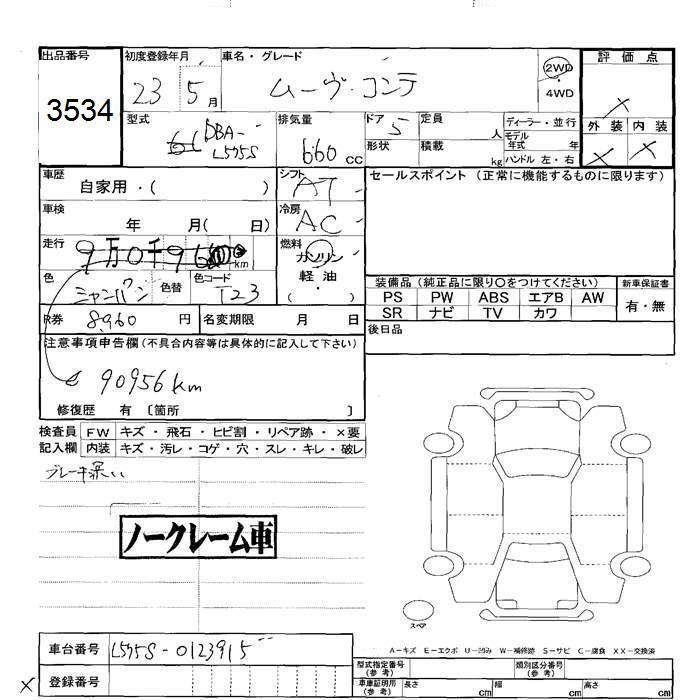 出品番号
3534
初度登録年月
23 5月
車名・グレード
ムーヴ・コンテ
2WD
・
4WD
評価点
×
外装 内装
× ×
型式
DBA-
L575S
排気量
660 cc
ドア 5
形状
定員 人
積載 kg
ディーラー・並行
モデル年式 年
ハンドル 左・右
車歴
自家用・( )
シフト
AT
セールスポイント (正常に機能するものに限ります)
車検
年 月( 日)
冷房
AC
走行
9万0千96 km
燃料
ガソリン
軽油
( ・ )
色
シャンパン
色替
色コード
T23
装備品 (純正品に限り○をつけてください)
PS PW ABS エアB AW
SR ナビ TV カワ
新車保証書
有・無
R券 8,960 円
名変期限 月 日
後日品
注意事項申告欄(不具合内容等は具体的に記入して下さい)
90956km
修復歴 有 〔箇所 〕
検査員 FW キズ・飛石・ヒビ割・リペア跡・×要
記入欄 内装 キズ・汚レ・コゲ・穴・スレ・キレ・破レ
ブレーキ深い
ノークレーム車
スペア
A-キズ E-エクボ U-凹み W-補修跡 S-サビ C-腐食 XX-交換済
車台番号 L575S-0123915
× 登録番号
型式指定番号(参考)
類別区分番号(参考)
車庫証明用(参考) 長さ cm 幅 cm 高さ cm